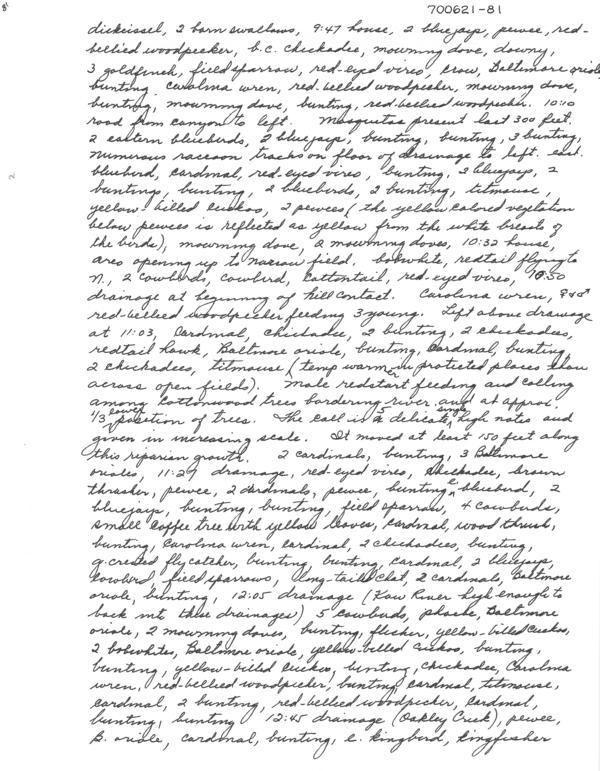 700621-81
dickcissel, 2 barn swallows, 9:47 house, 2 bluejays, pewee, red-
bellied woodpecker, b.c. chickadee, mourning dove, downy,
3 goldfinch, field sparrow, red-eyed vireo, crow, Baltimore oriole
bunting, Carolina wren, red-bellied woodpecker, mourning dove,
bunting, mourning dove, bunting, red-bellied woodpecker. 10:10
road from canyon to left. Mosquetas present last 300 feet,
2 eastern bluebirds, 2 bluejays, bunting, bunting, 3 bunting,
numerous raccoon tracks on floor of drainage to left. east.
bluebird, cardinal, red-eyed vireo, bunting, 3 bluejays, 2
buntings, bunting, 2 bluebirds, 2 bunting, titmouse,
yellow-billed cuckoo, 2 pewees (the yellow colored vegtation
below pewees is reflected as yellow from the white breasts of
the birds), mourning dove, 2 mourning doves, 10:32 house,
area opening up to narrow field. bobwhite, redtail flying to
N., 2 cowbirds, cowbird, cottontail, red-eyed vireo, 10:50
drainage at beginning of hill contact. Carolina wren, ♀ & ♂
red-bellied woodpecker feeding 3 young. Left above drainage
at 11:03, cardinal, chickadee, 2 bunting, 2 chickadees,
redtail hawk, Baltimore oriole, bunting, cardinal, bunting,
2 chickadees, titmouse (temp warmer in protected places than
across open fields). Male redstart feeding and calling
among cottonwood trees bordering river and at approx.
1/3 lower position of trees. The call is 5 delicate single high notes and
given in increasing scale. It moved at least 150 feet along
this reparian growth. 2 cardinals, bunting, 3 Baltimore
orioles, 11:29 drainage, red-eyed vireo, chickadee, brown
thrasher, pewee, 2 cardinals, pewee, bunting, e. bluebird, 2
bluejays, bunting, bunting, field sparrow, 4 cowbirds,
small coffee tree with yellow leaves, cardinal, wood thrush,
bunting, Carolina wren, cardinal, 2 chickadees, bunting,
g. crested flycatcher, bunting, bunting, cardinal, 2 bluejays,
cowbird, field sparrows, long-tailed chat, 2 cardinals, Baltimore
oriole, bunting, 12:05 drainage (Kaw River high enough to
back into these drainages) 5 cowbirds, phoebe, Baltimore
oriole, 2 mourning doves, bunting, flicker, yellow-billed cuckoo,
2 bobwhites, Baltimore oriole, yellow-billed cuckoo, bunting,
bunting, yellow-billed cuckoo, bunting, chickadee, Carolina
wren, red-bellied woodpecker, bunting, cardinal, titmouse,
cardinal, 2 bunting, red-bellied woodpecker, cardinal,
bunting, bunting 12:45 drainage (Oakley Creek), pewee,
B. oriole, cardinal, bunting, e. kingbird, kingfisher